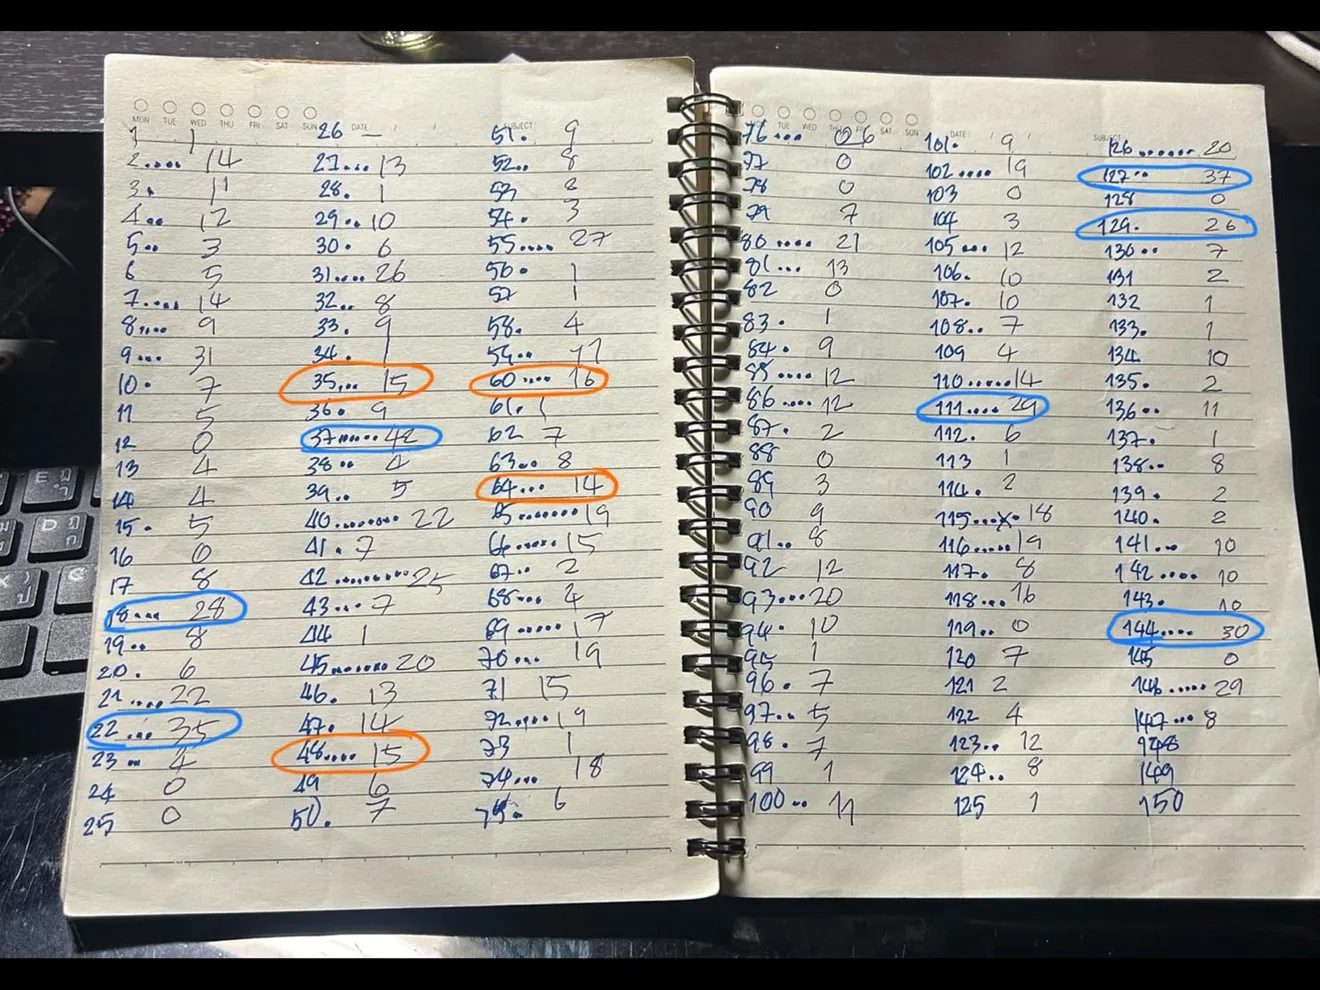 MON TUE WED THU FRI SAT SUN
DATE / /
SUBJECT
1 1
2..... 14
3. 11
4.. 12
5.. 3
6 5
7..... 14
8.... 9
9... 31
10. 7
11 5
12 0
13 4
14 4
15. 5
16 0
17 8
18.... 28
19.. 8
20. 6
21..... 22
22.... 35
23.. 4
24 0
25 0
26 –
27... 13
28. 1
29.. 10
30. 6
31.... 26
32.. 8
33. 9
34. 1
35... 15
36. 9
37...... 42
38.. 4
39.. 5
40........ 22
41. 7
42.......... 25
43... 7
44 1
45....... 20
46. 13
47. 14
48.... 15
49 6
50. 7
51. 9
52.. 8
53 2
54. 3
55.... 27
56. 1
57 1
58. 4
59..
60.... 16
61. 1
62 7
63.. 8
64... 14
65....... 19
66...... 15
67.. 2
68... 4
69..... 17
70... 19
71 15
72..... 19
73 1
74... 18
75. 6
MON TUE WED THU FRI SAT SUN
DATE / /
SUBJECT
76...
77 0
78 0
79 7
80.... 21
81... 13
82 0
83. 1
84. 9
85.... 12
86.... 12
87. 2
88 0
89 3
90 9
91.. 8
92 12
93... 20
94. 10
95 1
96. 7
97.. 5
98. 7
99 1
100..
101. 9
102.... 19
103 0
104 3
105... 12
106. 10
107. 10
108.. 7
109 4
110..... 14
111.... 29
112. 6
113 1
114. 2
115...x. 18
116..... 19
117. 8
118... 16
119.. 0
120 7
121 2
122 4
123.. 12
124.. 8
125 1
126...... 20
127.. 37
128 0
129. 26
130.. 7
131 2
132 1
133. 1
134 10
135. 2
136.. 11
137. 1
138.. 8
139. 2
140. 2
141.. 10
142.... 10
143. 10
144.... 30
145 0
146..... 29
147... 8
148
149
150